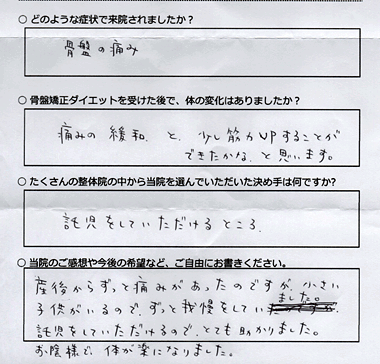 ○ どのような症状で来院されましたか？
骨盤の痛み
○ 骨盤矯正ダイエットを受けた後で、体の変化はありましたか？
痛みの緩和と、少し筋力UPすることが
できたかな、と思います。
○ たくさんの整体院の中から当院を選んでいただいた決め手は何ですか?
託児をしていただけるところ。
○ 当院のご感想や今後の希望など、ご自由にお書きください。
産後からずっと痛みがあったのですが、小さい
子供がいるので、ずっと我慢をしていました。
託児をしていただけるので、とても助かりました。
お陰様で、体が楽になりました。